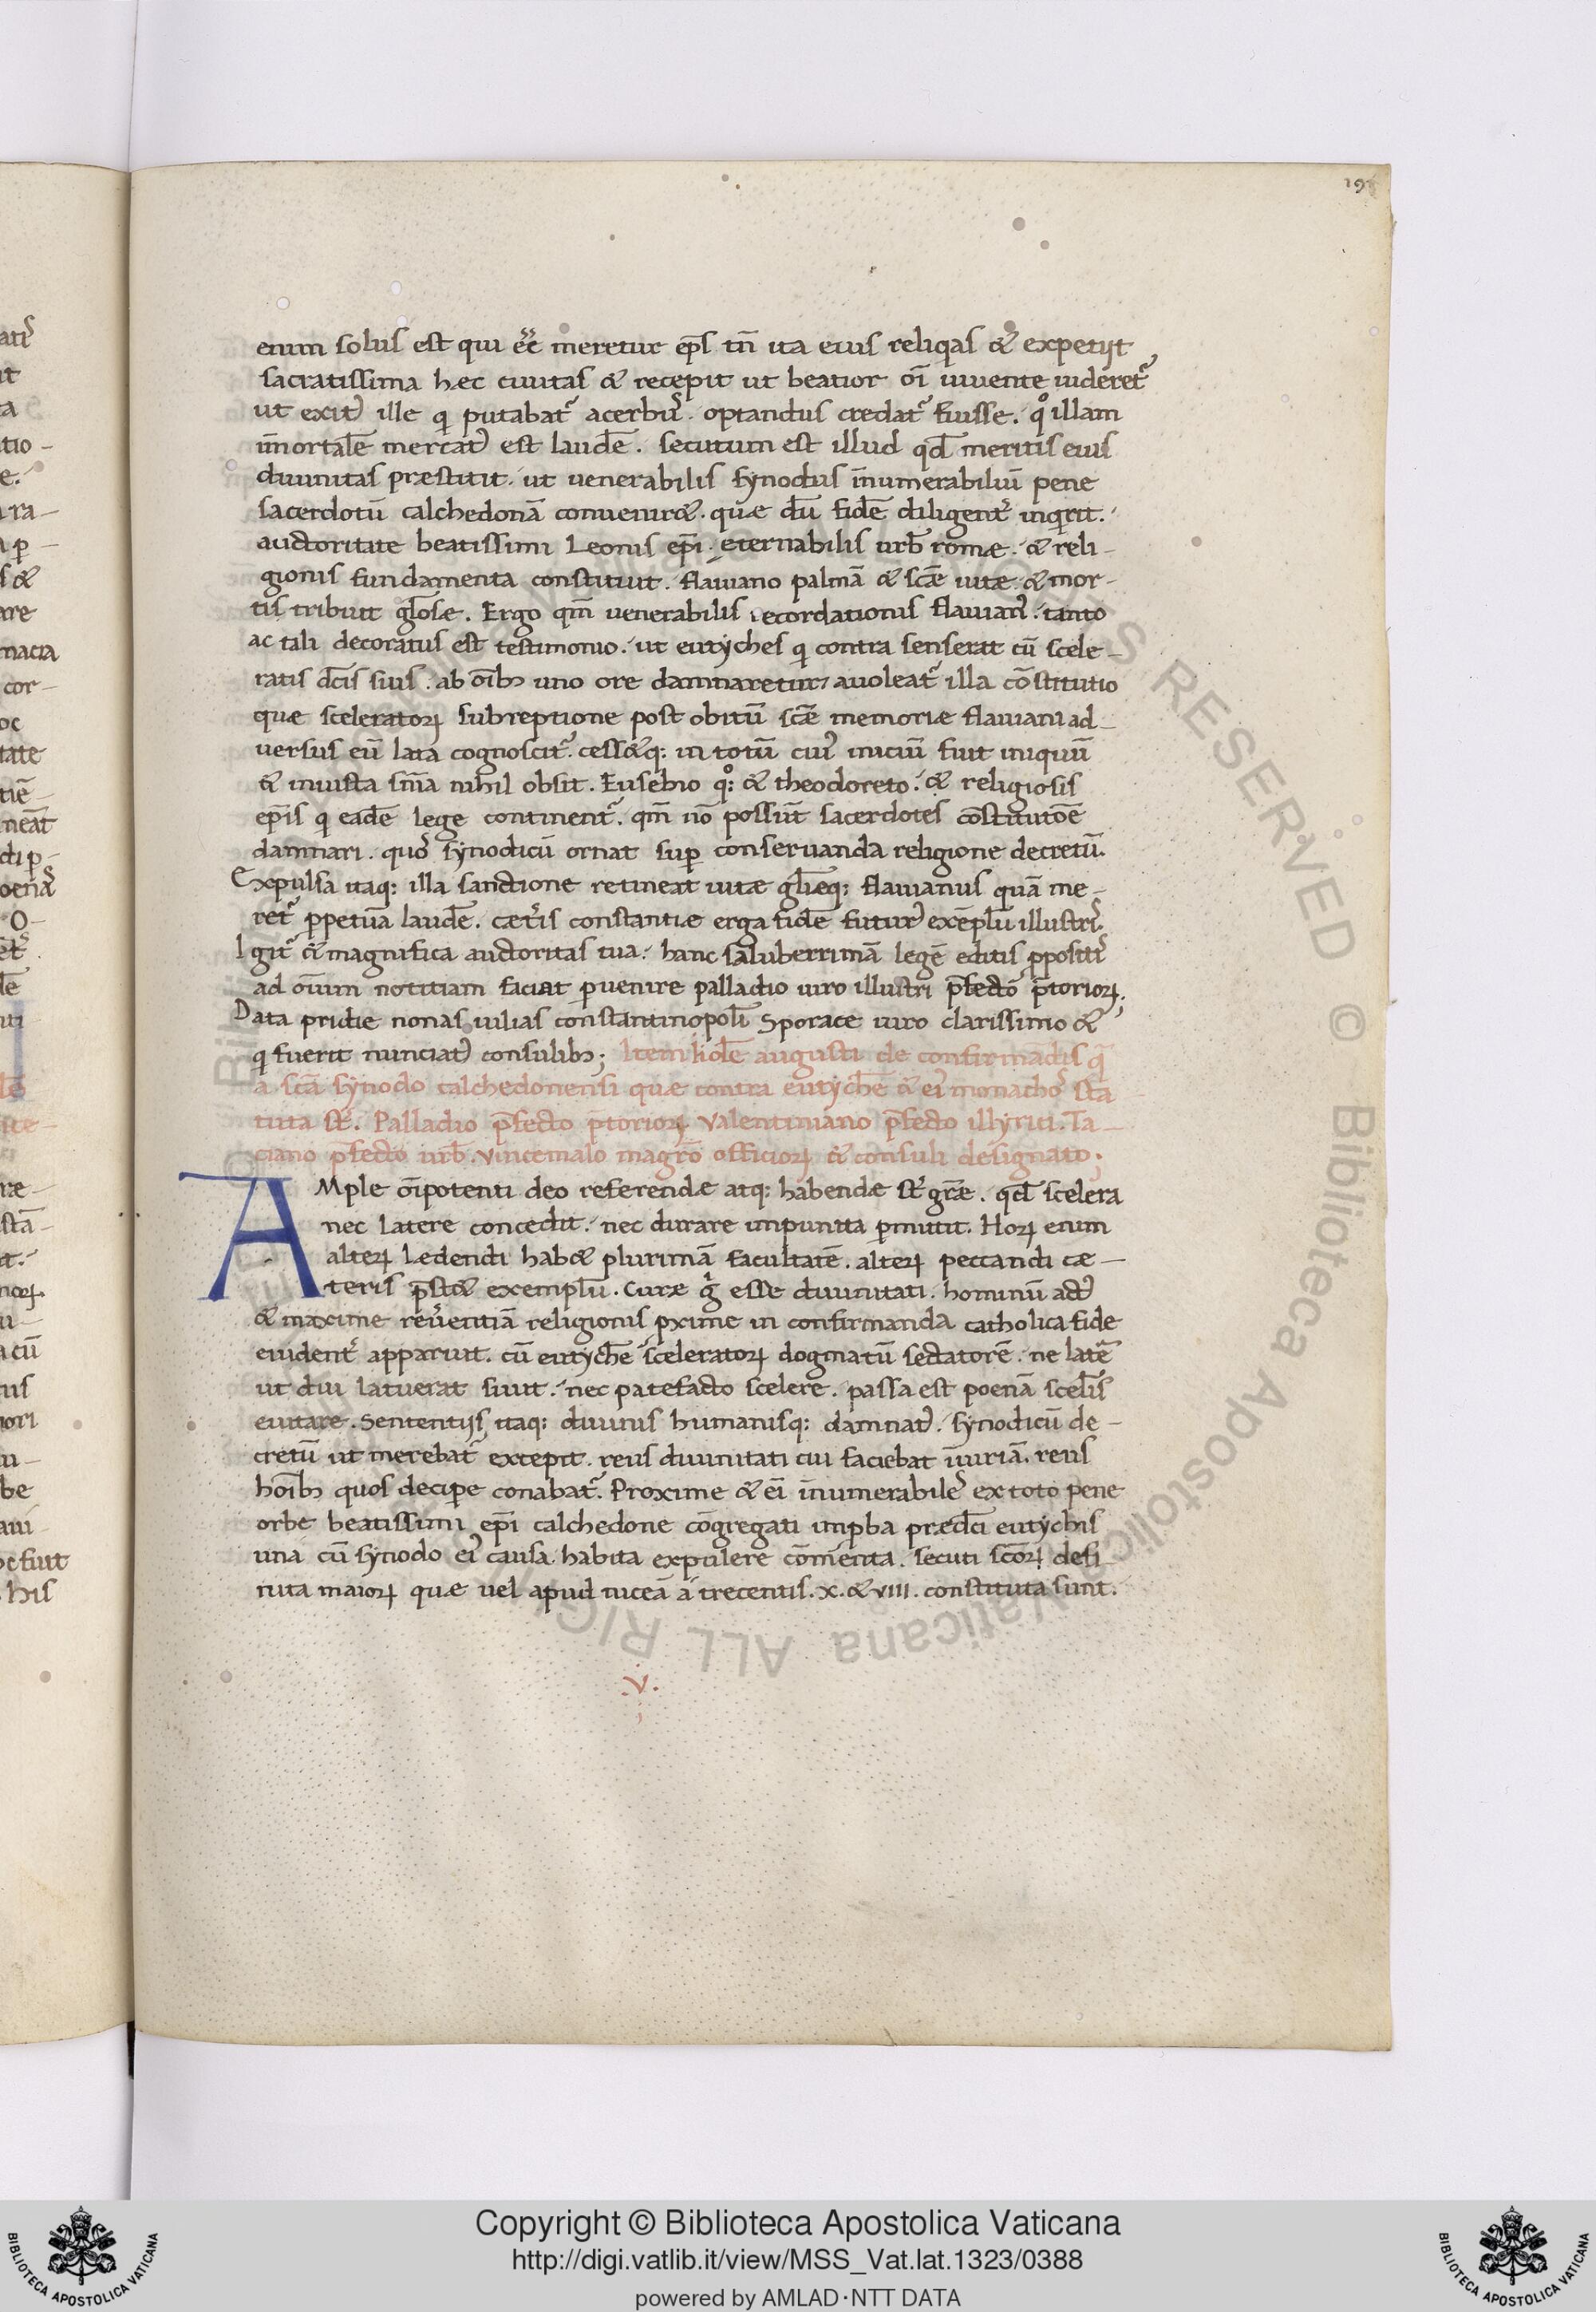 198
enim solus est qui eēē meretur ep̄s tn̄ ita eius reliqas & expetijt
sacratissima hec ciuitas & recepit ut beatior oī uiuente uideret᷑
ut exit᷒ ille q putabat᷑ acerbus. optandus credat᷑ fuisse. qͦ illam
īmortalē mercat᷒ est laudē. secutum est illud qđ meritis eius
diuinitas præstitit. ut uenerabilis synodus īnumerabiliū pene
sacerdotū calchedonā conuenir&. quæ dū fidē diligent᷑ inqrit.
auctoritate beatissimi Leonis ep̄i. eternabilis urb̄ romæ. & reli-
gionis fundamenta constituit. flauiano palmā & scǣ uitæ & mor-
tis tribuit gl̄osæ. Ergo qm̄ uenerabilis recordationis flauian᷒. tanto
ac tali decoratus est testimonio. ut eutyches q contra senserat cū scele-
ratis dc̄is suis. ab oīb; uno ore damnaretur, auoleat᷑ illa cōstitutio
quæ sceleratoꝝ subreptione post obitū scǣ memoriæ flauiani ad-
uersus eū lata cognoscit᷑. cess&q: in totū cui᷒ iniciū fuit iniquū
& iniusta sn̄ia nihil obsit. Eusebio qͦ: & theodoreto. & religiosis
ep̄is q eadē lege continent᷑. qm̄ nō possūt sacerdotes cōstitutōē
damnari. quos synodicū ornat suꝑ conseruanda religione decretū.
Expulsa itaq: illa sanctione retineat uitæ gl̄ieq: flauianus quā me-
ret᷑ ꝑpetuā laudē. cæt᷑is constantiæ erga fidē futur᷒ exēplū illustris.
Igit᷑ & magnifica auctoritas tua. hanc saluberrimā legē edictis ꝓpositis
ad oīum notitiam faciat ꝑuenire palladio uiro illustri p̄fecto p̄torioꝝ.
Data pridie nonas iulias constantinopoli Sporace uiro clarissimo &
q fuerit nunciat᷒ consulib;; Item kiol̄e augusti de confirmādis q̄
a scā synodo calchedonensi quæ contra eutychē & ei᷒ monachos sta
tuta st᷑. Palladio p̄fecto p̄torioꝝ. Valentiniano p̄fecto illyrici. Ta-
ciano p̄fecto urb̄. Vincemalo magrō officioꝝ & consuli designato;
AMple oīpotenti deo referendæ atq: habendæ st᷑ grǣ. qđ scelera
nec latere concedit. nec durare impunita ꝑmittit. Hoꝝ enim
alteꝝ Ledendi hab& plurimā facultatē. alteꝝ peccandi cæ-
teris p̄st& exemplū. Curæ g esse diuinitati. hominū act᷒
& maxime reuerentiā religionis ꝓxime in confirmanda catholica fide
euident᷑ apparuit. cū eutychē sceleratoꝝ dogmatū sectatorē. ne lat᷑e
ut diu latuerat siuit. nec patefacto scelere. passa est poenā sceł̄is
euitare. Sententijs itaq: diuinis humanisq: damnat᷒. synodicū de-
cretū ut merebat᷑ excepit. reus diuinitati cui faciebat iīuriā. reus
hoīb; quos deciꝑe conabat᷑. Proxime & eī īnumerabiles ex toto pene
orbe beatissimi ep̄i calchedone cōgregati imꝓba prædc̄i eutychis
una cū synodo ei᷒ causa habita expulere cōmenta. secuti scōꝝ defi
nita maioꝝ quæ uel apud niceā a trecentis. x. & VIII. constituta sunt.
.V.
© Biblioteca Apostolica Vaticana ALL RIGHTS RESERVED © Biblioteca Apostolica Vaticana ALL RIGHTS RESERVED
Copyright © Biblioteca Apostolica Vaticana
http://digi.vatlib.it/view/MSS_Vat.lat.1323/0388
powered by AMLAD·NTT DATA
BIBLIOTECA APOSTOLICA VATICANA
BIBLIOTECA APOSTOLICA VATICANA